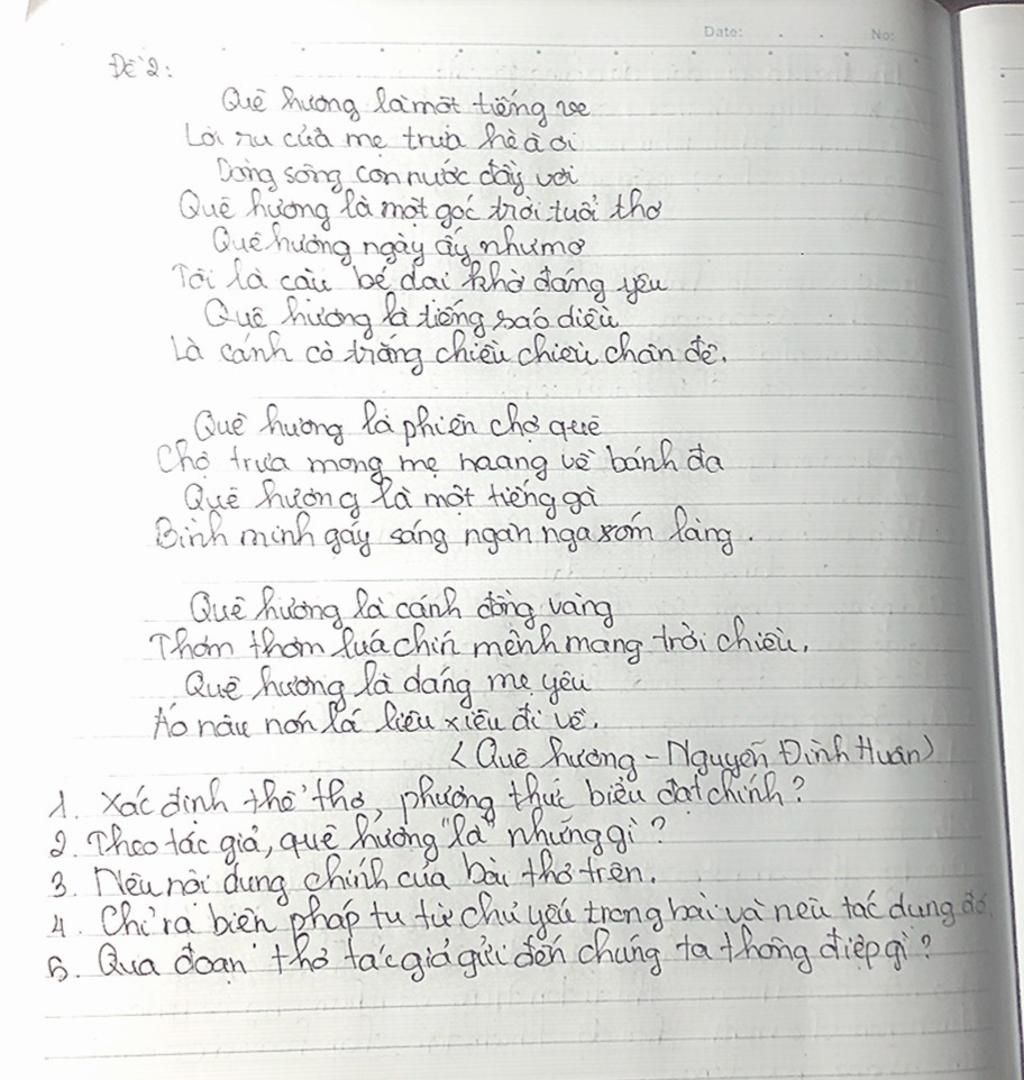 Date:
No:
Đề 2:
Quê hương là một tiếng ve
Lời ru của mẹ trưa hè à ơi
Dòng sông con nước đầy vơi
Quê hương là một góc trời tuổi thơ
Quê hương ngày ấy như mơ
Tôi là cậu bé dại khờ đáng yêu
Quê hương là tiếng sáo diều
Là cánh cò trắng chiều chiều chân đê.
Quê hương là phiên chợ quê
Chợ trưa mong mẹ mang về bánh đa
Quê hương là một tiếng gà
Bình minh gáy sáng ngân nga xóm làng.
Quê hương là cánh đồng vàng
Thơm thơm lúa chín mênh mang trời chiều.
Quê hương là dáng mẹ yêu
Áo nâu nón lá liêu xiêu đi về.
(Quê hương - Nguyễn Đình Huân)
1. Xác định thể thơ, phương thức biểu đạt chính?
2. Theo tác giả, quê hương "là" những gì?
3. Nêu nội dung chính của bài thơ trên.
4. Chỉ ra biện pháp tu từ chủ yếu trong bài và nêu tác dụng đó
5. Qua đoạn thơ tác giả gửi đến chúng ta thông điệp gì?